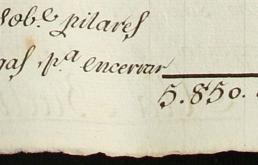 sob.e pilares
p.a encerrar
5.850.